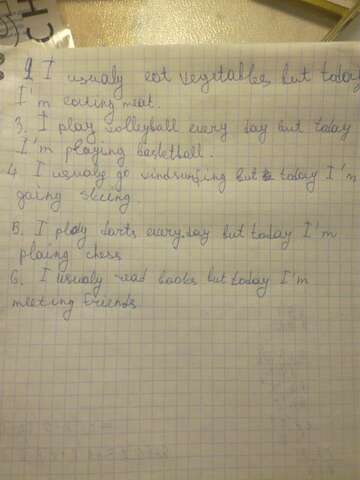 2 I usualy eat vegetables but today
I'm eating meat.
3. I play volleyball every day but today
I'm playing basketball.
4. I usualy go windsurfing but today I'm
going skiing.
5. I play darts every day but today I'm
plaing chess
6. I usualy read books but today I'm
meeting friends